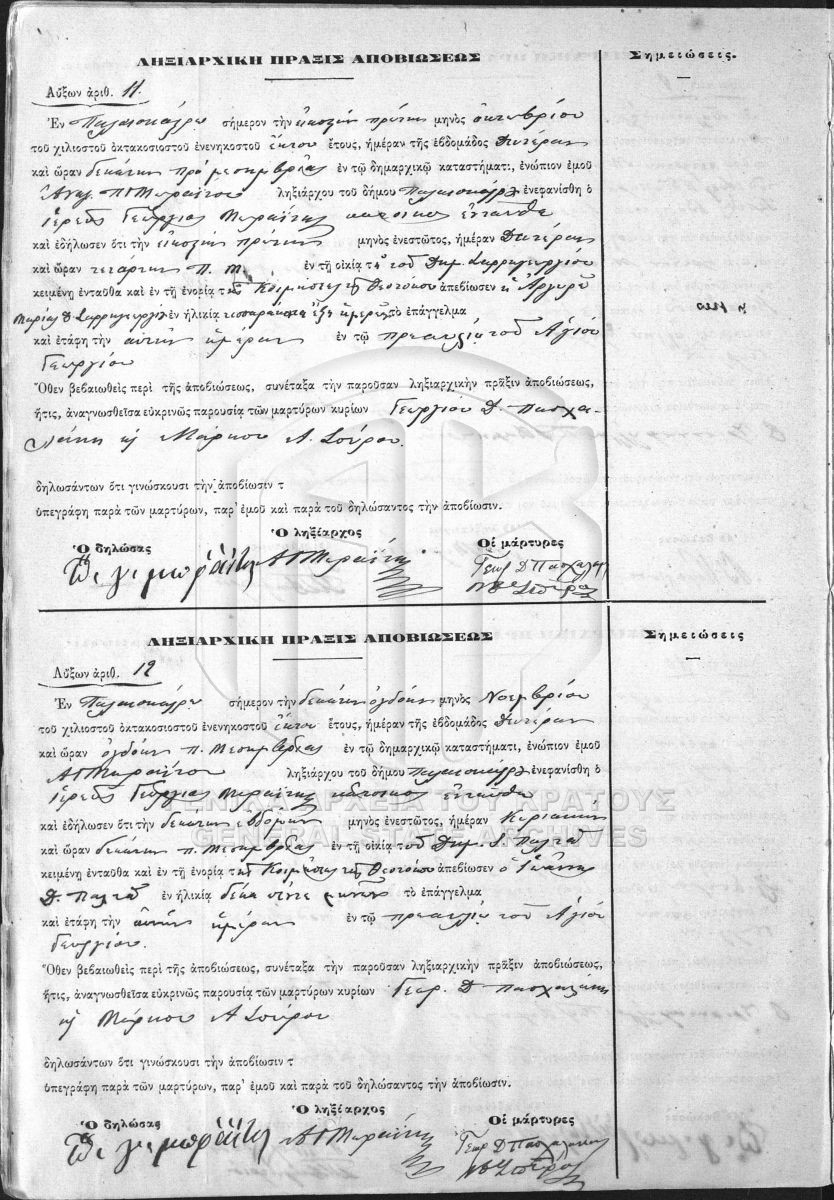 ΛΗΞΙΑΡΧΙΚΗ ΠΡΑΞΙΣ ΑΠΟΒΙΩΣΕΩΣ
Σημειώσεις.
Αὔξων ἀριθ. 11.
Ἐν Παλαιοκάστρῳ σήμερον τὴν εἰκοστὴν πρώτην μηνὸς ὀκτωβρίου
τοῦ χιλιοστοῦ ὀκτακοσιοστοῦ ἐνενηκοστοῦ ἕκτου ἔτους, ἡμέραν τῆς ἑβδομάδος Δευτέραν
καὶ ὥραν δεκάτην πρὸ μεσημβρίας ἐν τῷ δημαρχικῷ καταστήματι, ἐνώπιον ἐμοῦ
ληξιάρχου τοῦ δήμου ἐνεφανίσθη ὁ
ἱερεὺς Γεώργιος κάτοικος ἐνταῦθα
καὶ ἐδήλωσεν ὅτι τὴν εἰκοστὴν πρώτην μηνὸς ἐνεστῶτος, ἡμέραν Δευτέραν
καὶ ὥραν τετάρτην Π. Μ. ἐν τῇ οἰκίᾳ τοῦ Δημ. Σαρρηγεωργίου
κειμένῃ ἐνταῦθα καὶ ἐν τῇ ἐνορίᾳ τῆς Κοιμήσεως τῆς Θεοτόκου ἀπεβίωσεν
ἐν ἡλικίᾳ τεσσαράκοντα ἓξ ἡμερῶν τὸ ἐπάγγελμα
καὶ ἐτάφη τὴν αὐτὴν ἡμέραν ἐν τῷ προαυλίῳ τοῦ Ἁγίου
Γεωργίου
Ὅθεν βεβαιωθεὶς περὶ τῆς ἀποβιώσεως, συνέταξα τὴν παροῦσαν ληξιαρχικὴν πρᾶξιν ἀποβιώσεως,
ἥτις, ἀναγνωσθεῖσα εὐκρινῶς παρουσίᾳ τῶν μαρτύρων κυρίων Γεωργίου Δ. Πασχα-
λάκη καὶ Μάρκου Λ. Σπύρου.
δηλωσάντων ὅτι γινώσκουσι τὴν ἀποβίωσιν τ
ὑπεγράφη παρὰ τῶν μαρτύρων, παρ' ἐμοῦ καὶ παρὰ τοῦ δηλώσαντος τὴν ἀποβίωσιν.
Ὁ δηλώσας
Ὁ ληξίαρχος
Οἱ μάρτυρες
Γεωρ Δ Πασχαλάκης
ΛΗΞΙΑΡΧΙΚΗ ΠΡΑΞΙΣ ΑΠΟΒΙΩΣΕΩΣ
Σημειώσεις
Αὔξων ἀριθ. 12
Ἐν Παλαιοκάστρῳ σήμερον τὴν δεκάτην ὀγδόην μηνὸς Νοεμβρίου
τοῦ χιλιοστοῦ ὀκτακοσιοστοῦ ἐνενηκοστοῦ ἕκτου ἔτους, ἡμέραν τῆς ἑβδομάδος Δευτέραν
καὶ ὥραν ὀγδόην π. Μεσημβρίας ἐν τῷ δημαρχικῷ καταστήματι, ἐνώπιον ἐμοῦ
ληξιάρχου τοῦ δήμου ἐνεφανίσθη ὁ
ἱερεὺς Γεώργιος κάτοικος ἐνταῦθα
ΓΕΝΙΚΑ ΑΡΧΕΙΑ ΤΟΥ ΚΡΑΤΟΥΣ
καὶ ἐδήλωσεν ὅτι τὴν δεκάτην ἑβδόμην μηνὸς ἐνεστῶτος, ἡμέραν Κυριακὴν
GENERAL STATE ARCHIVES
καὶ ὥραν δεκάτην π. Μεσημβρίας ἐν τῇ οἰκίᾳ τοῦ Δημ. Ι.
κειμένῃ ἐνταῦθα καὶ ἐν τῇ ἐνορίᾳ τῆς Κοιμήσεως τῆς Θεοτόκου ἀπεβίωσεν ὁ Ἰωάννης
Δ. ἐν ἡλικίᾳ δέκα πέντε μηνῶν τὸ ἐπάγγελμα
καὶ ἐτάφη τὴν αὐτὴν ἡμέραν ἐν τῷ προαυλίῳ τοῦ Ἁγίου
Γεωργίου.
Ὅθεν βεβαιωθεὶς περὶ τῆς ἀποβιώσεως, συνέταξα τὴν παροῦσαν ληξιαρχικὴν πρᾶξιν ἀποβιώσεως,
ἥτις, ἀναγνωσθεῖσα εὐκρινῶς παρουσίᾳ τῶν μαρτύρων κυρίων Γεωρ. Δ Πασχαλάκη
καὶ Μάρκου Λ Σπύρου
δηλωσάντων ὅτι γινώσκουσι τὴν ἀποβίωσιν τ
ὑπεγράφη παρὰ τῶν μαρτύρων, παρ' ἐμοῦ καὶ παρὰ τοῦ δηλώσαντος τὴν ἀποβίωσιν.
Ὁ δηλώσας
Ὁ ληξίαρχος
Οἱ μάρτυρες
Γεωρ Δ Πασχαλάκης